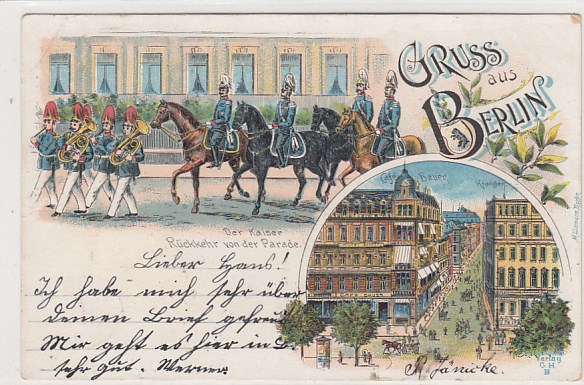 GRUSS
aus
BERLIN
Café Bauer
Kranzler
Der Kaiser
Rückkehr von der Parade.
Lieber Hans!
Ich habe mich sehr über
deinen Brief gefreut
Mir geht es hier in B.
sehr gut. Werner
Jänicke.
Verlag
G. H.
B